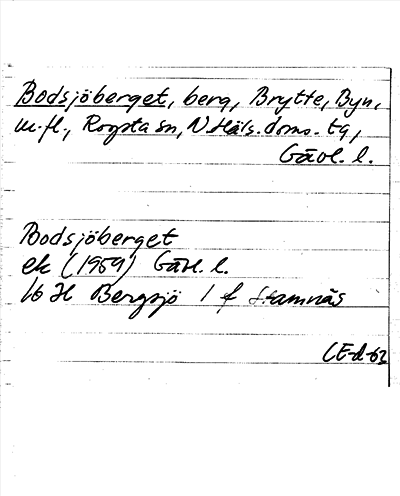 Bodsjöberget, berg, Brytte, Byn,
m.fl., Rogsta sn, N Häls. doms. tg,
Gävl. l.
Bodsjöberget
ek (1959) Gävl. l.
16 H Bergsjö 1 f Stamnäs
CE-d-62